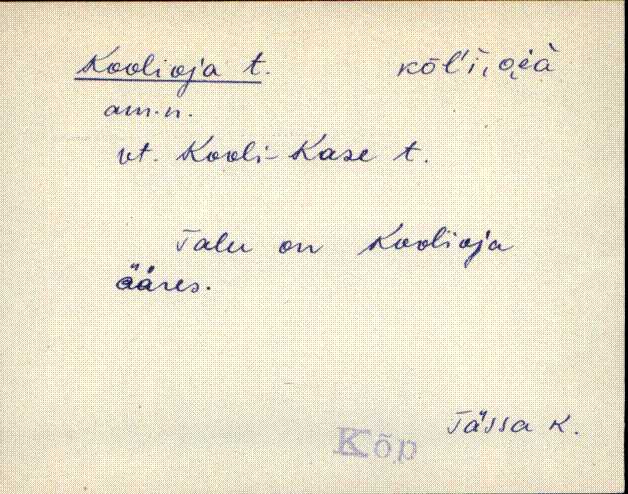 Koolioja t. kōl'ì, o̬i̯à
am.n.
vt. Kooli-Kase t.
Talu on Koolioja
ääres.
Tässa K.
Kõp